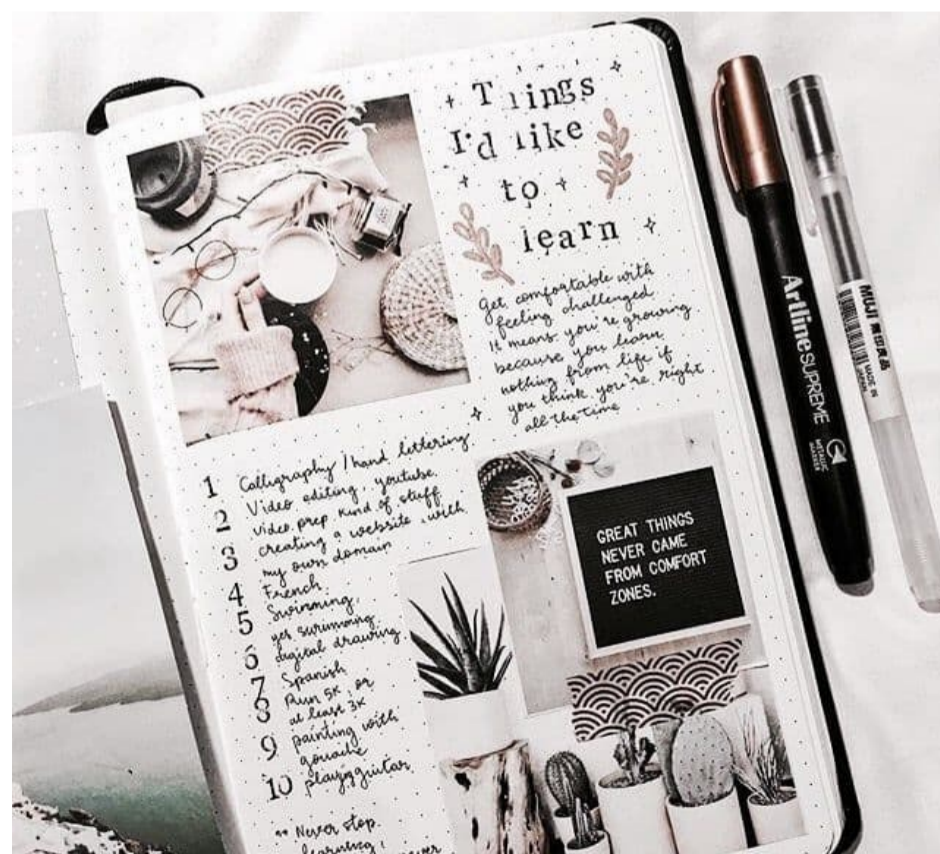 Things
I'd like
to
learn
Get comfortable with
feeling challenged
It means you're growing
because you learn
nothing from life if
you think you're right
all the time
1 Calligraphy / hand lettering
2 Video editing, youtube
video prep kind of stuff
3 creating a website with
my own domain
4 French
5 Swimming,
yes swimming
6 digital drawing
7 Spanish
8 Run 5K, or
at least 3K
9 painting with
gouache
10 playing guitar
GREAT THINGS
NEVER CAME
FROM COMFORT
ZONES.
" Never stop
learning,
never
Artline SUPREME
METALLIC
MARKER
MUJI 無印良品
MADE IN
JAPAN